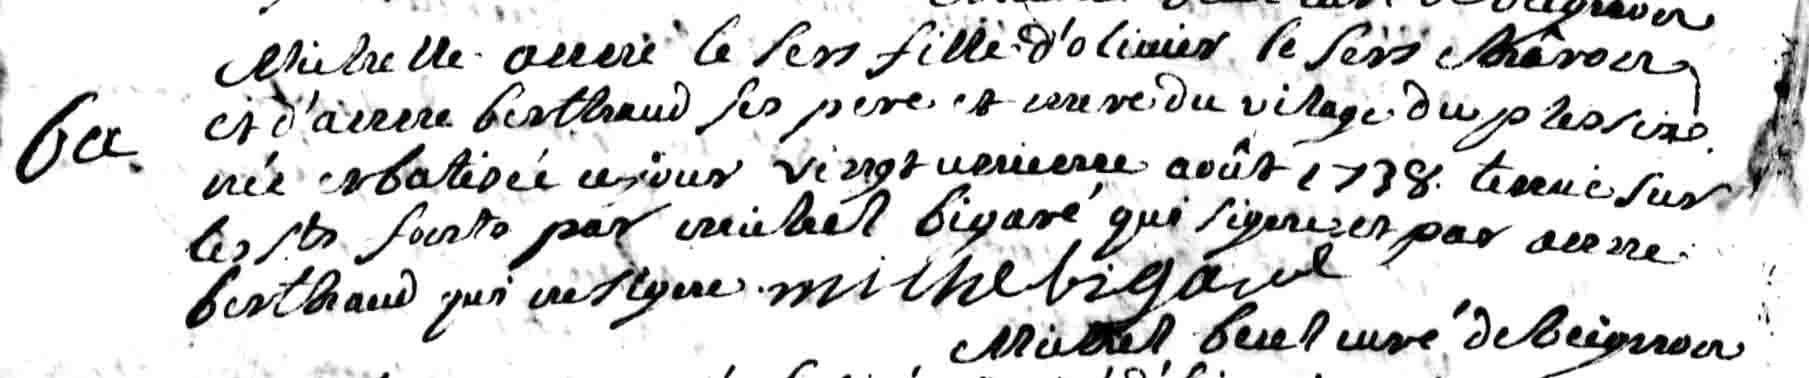 Michelle anne le sers fille d'olivier le sers
ba. et d'anne berthraud ses pere et mere du vilage du plessix
née et batisée ce jour vingt unieme août 1738. tenue sur
les sts fonts par michel bigaré qui signe et par anne
berthraud qui ne signe. michel bigare
Michel curé de beignon